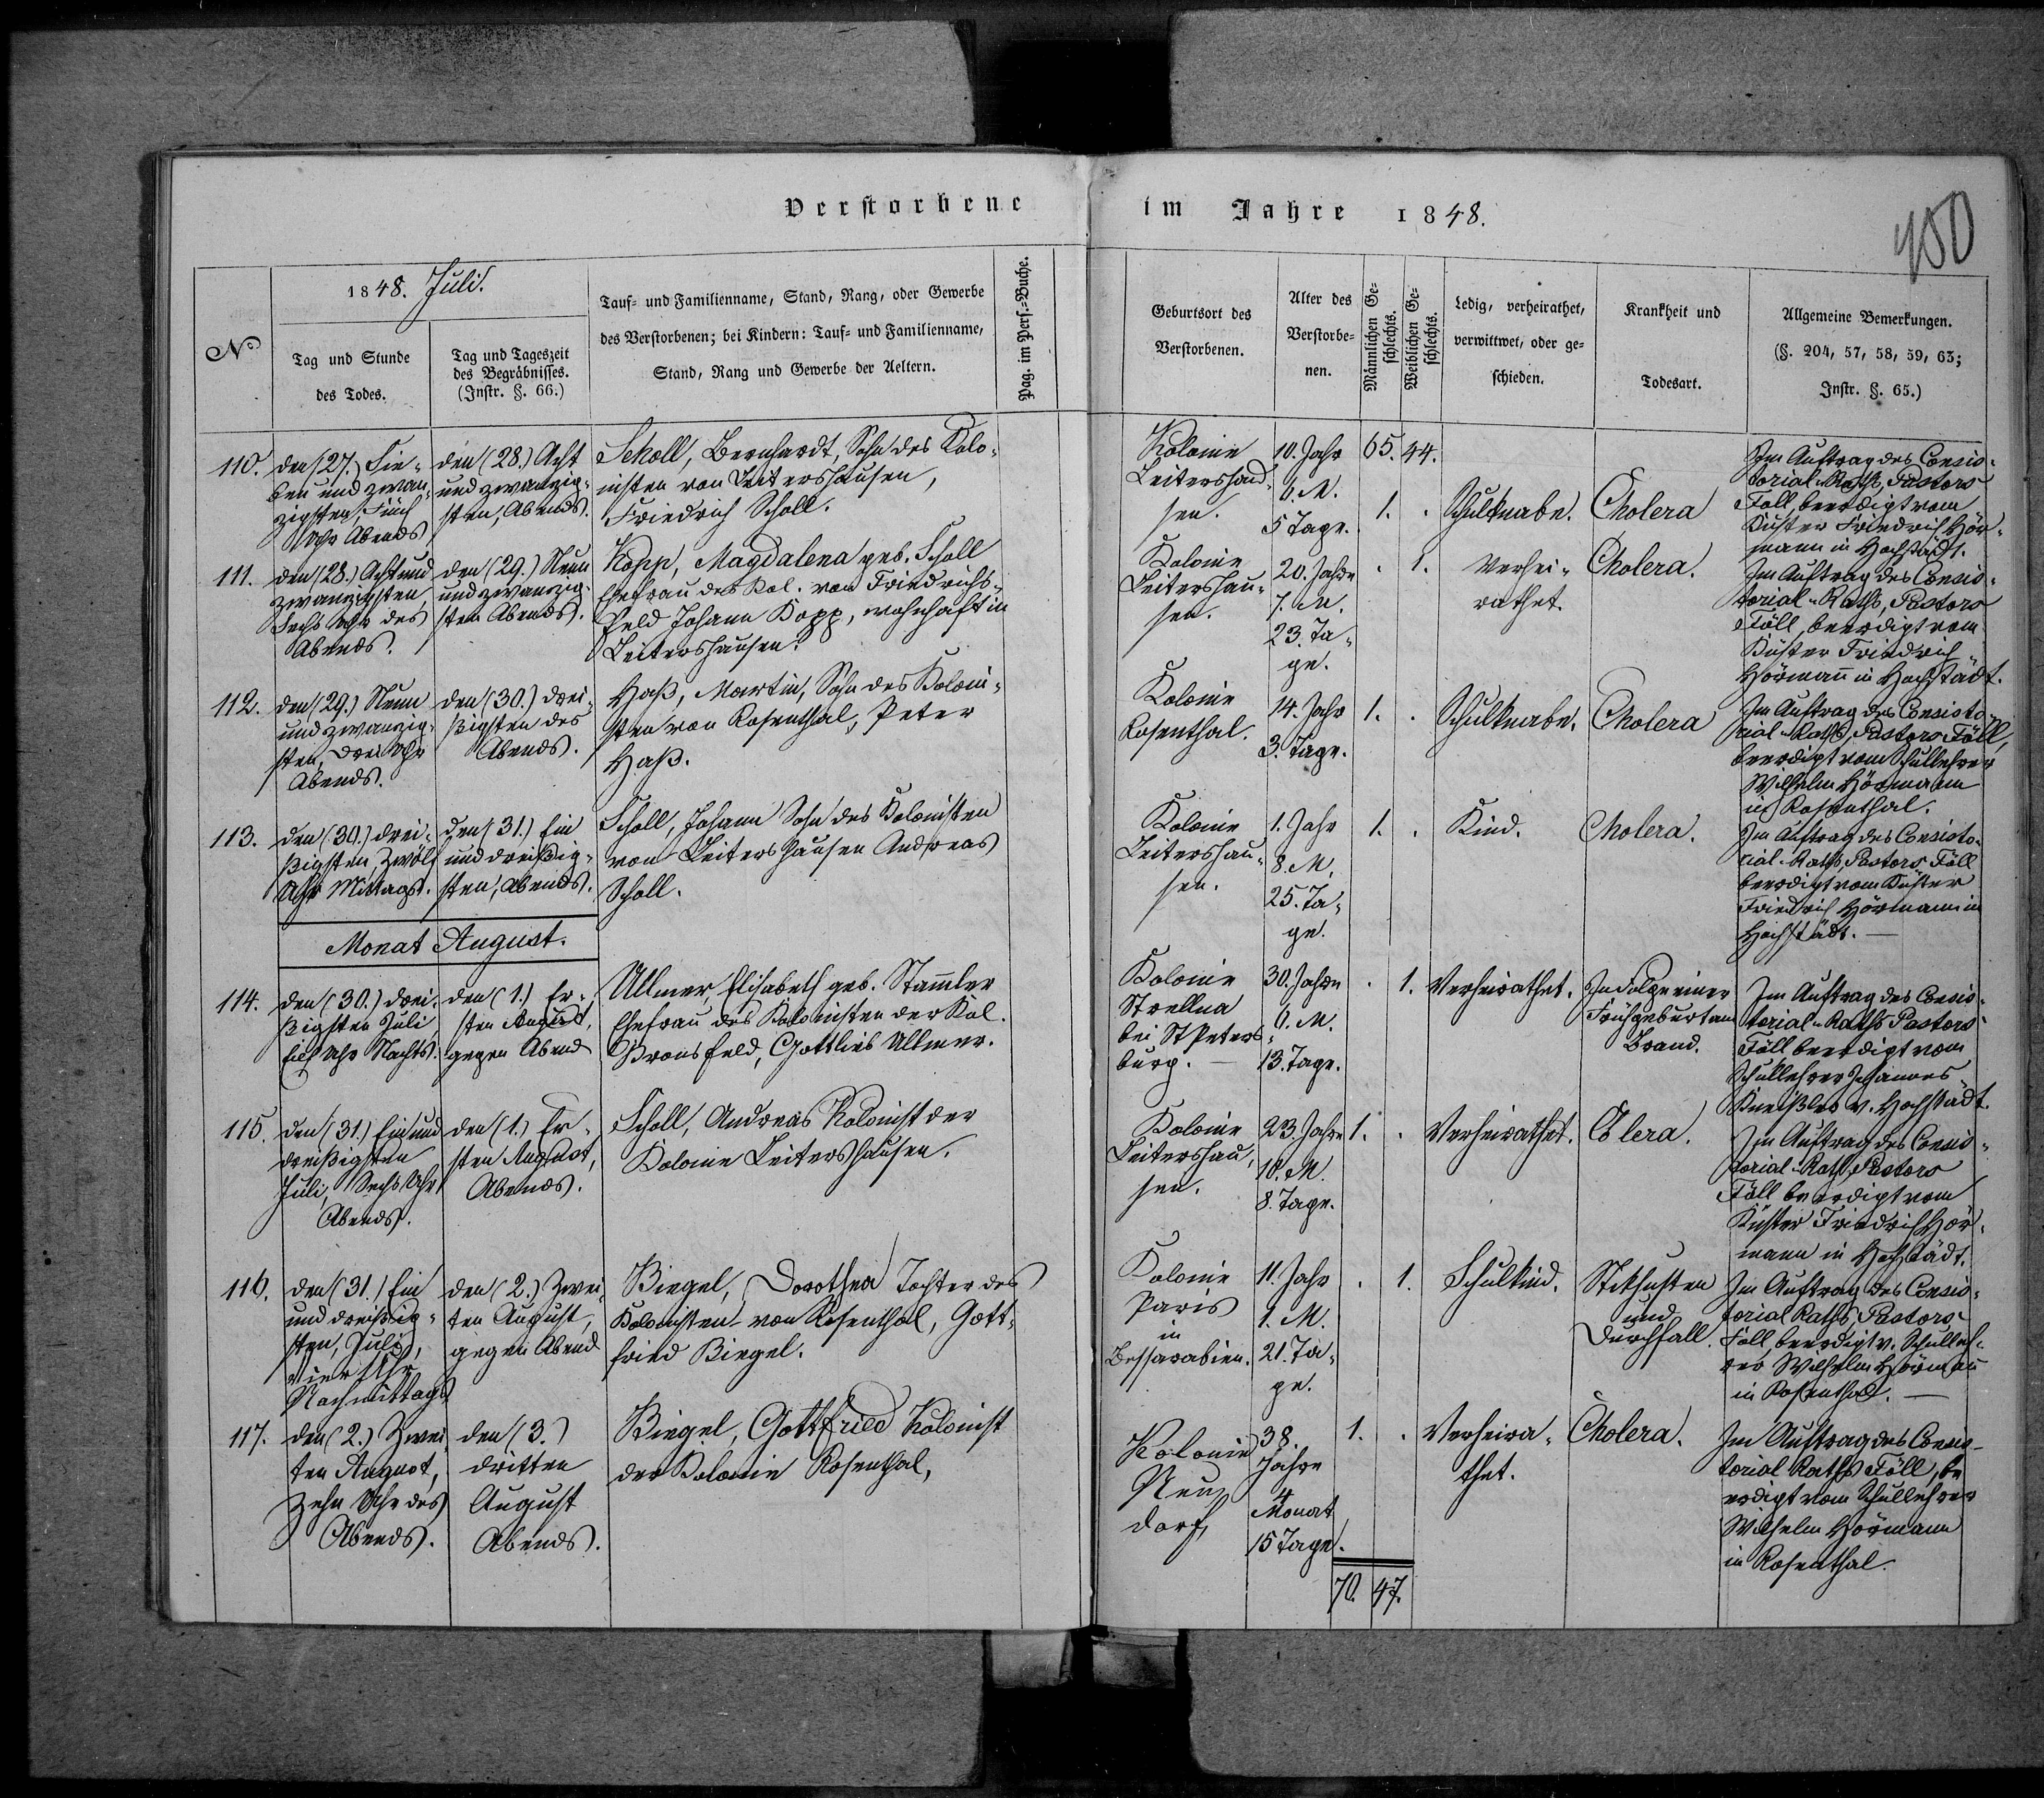 Verstorbene im Jahre 1848.
450
No
1848. Juli.
Tag und Stunde
des Todes.
Tag und Tageszeit
des Begräbnisses.
(Instr. §. 66.)
Tauf- und Familienname, Stand, Rang, oder Gewerbe
des Verstorbenen; bei Kindern: Tauf- und Familienname,
Stand, Rang und Gewerbe der Aeltern.
Pag. im Pers.-Buche.
Geburtsort des
Verstorbenen.
Alter des
Verstorbe-
nen.
Männlichen Ge-
schlechts.
Weiblichen Ge-
schlechts.
Ledig, verheirathet,
verwittwet, oder ge-
schieden.
Krankheit und
Todesart.
Allgemeine Bemerkungen.
(§. 204, 57, 58, 59, 63;
Instr. §. 65.)
110.
den (27.) Sie-
ben und zwan-
zigsten, Fünf
Uhr Abends
den (28.) Acht
und zwanzig-
sten, Abends.
Scholl, Bernhardt, Sohn des Kolo-
nisten von Leitershausen,
Friedrich Scholl.
Kolonie
Leitershau-
sen.
10. Jahr
6. M.
5 Tage.
65. 44.
1. .
Schulknabe.
Cholera
Im Auftrag des Consis-
torial-Raths, Pastors
Föll, beerdigt vom
Küster Friedrich Hör-
mann in Hochstädt.
111.
den (28.) Acht und
zwanzigsten,
Sechs Uhr des
Abends.
den (29.) Neun
und zwanzig-
sten Abends.
Kopp, Magdalena geb. Scholl
Ehefrau des Kol. von Friedrichs-
feld Johann Kopp, wohnhaft in
Leitershausen.
Kolonie
Leitershau-
sen.
20. Jahre
7. M.
23. Ta-
ge.
. 1.
Verhei-
rathet.
Cholera.
Im Auftrag des Consis-
torial-Raths, Pastors
Föll, beerdigt vom
Küster Friedrich
Hörmann in Hochstädt.
112.
den (29.) Neun
und zwanzig-
sten, drei Uhr
Abends.
den (30.) drei-
ßigsten des
Abends.
Haß, Martin, Sohn des Koloni-
sten von Rosenthal, Peter
Haß.
Kolonie
Rosenthal.
14. Jahr
3. Tage.
1. .
Schulknabe.
Cholera
Im Auftrag des Consisto-
rial-Raths, Pastors Föll,
beerdigt vom Schullehrer
Wilhelm Hörmann
in Rosenthal.
113.
den (30.) drei-
ßigsten, Zwölf
Uhr Mittags.
den (31.) Ein
und dreißig-
sten, Abends.
Scholl, Johann Sohn des Kolonisten
von Leitershausen Andreas
Scholl.
Kolonie
Leitershau-
sen.
1. Jahr
8. M.
25. Ta-
ge.
1. .
Kind.
Cholera.
Im Auftrag des Consisto-
rial-Raths, Pastors Föll
beerdigt vom Küster
Friedrich Hörmann in
Hochstädt.
Monat August.
114.
den (30.) drei-
ßigsten Juli
Elf Uhr Nachts.
den (1.) Er-
sten August,
gegen Abend
Ullmer, Elisabeth geb. Stamler
Ehefrau des Kolonisten der Kol.
Pronsfeld, Gottlieb Ullmer.
Kolonie
Strellna
bei St Peters-
burg.
30. Jahre
6. M.
13. Tage.
. 1.
Verheirathet.
In Folge einer
Frühgeburt am
Brand.
Im Auftrag des Consis-
torial-Raths Pastors
Föll beerdigt vom
Schullehrer Johannes
v. Hochstädt.
115.
den (31.) Ein und
dreißigsten
Juli, Sechs Uhr
Abends.
den (1.) Er-
sten August,
Abends.
Scholl, Andreas Kolonist der
Kolonie Leitershausen.
Kolonie
Leitershau-
sen.
23. Jahre
10. M.
8. Tage.
1. .
Verheirathet.
Colera.
Im Auftrag des Consis-
torial-Raths, Pastors
Föll beerdigt vom
Küster Friedrich Hör-
mann in Hochstädt.
116.
den (31.) Ein
und dreißig-
sten, Juli,
vier Uhr
Nachmittags
den (2.) Zwei-
ten August,
gegen Abend
Biegel, Dorothea Tochter des
Kolonisten von Rosenthal, Gott-
fried Biegel.
Kolonie
Paris
in
Bessarabien.
11. Jahr
1. M.
21. Ta-
ge.
. 1.
Schulkind.
Stickhusten
und
Durchfall.
Im Auftrag des Consis-
torial Raths Pastors
Föll, beerdigt v. Schulleh-
rer Wilhelm Hörmann
in Rosenthal.
117.
den (2.) Zwei-
ten August,
Zehn Uhr des
Abends.
den (3.)
dritten
August
Abends.
Biegel, Gottfried Kolonist
der Kolonie Rosenthal,
Kolonie
Neu-
dorf,
38.
Jahre
4
Monat
15 Tage.
1. .
Verheira-
thet.
Cholera.
Im Auftrag des Consis-
torial Raths Föll, be
erdigt vom Schullehrer
Wilhelm Hörmann
in Rosenthal.
70. 47.